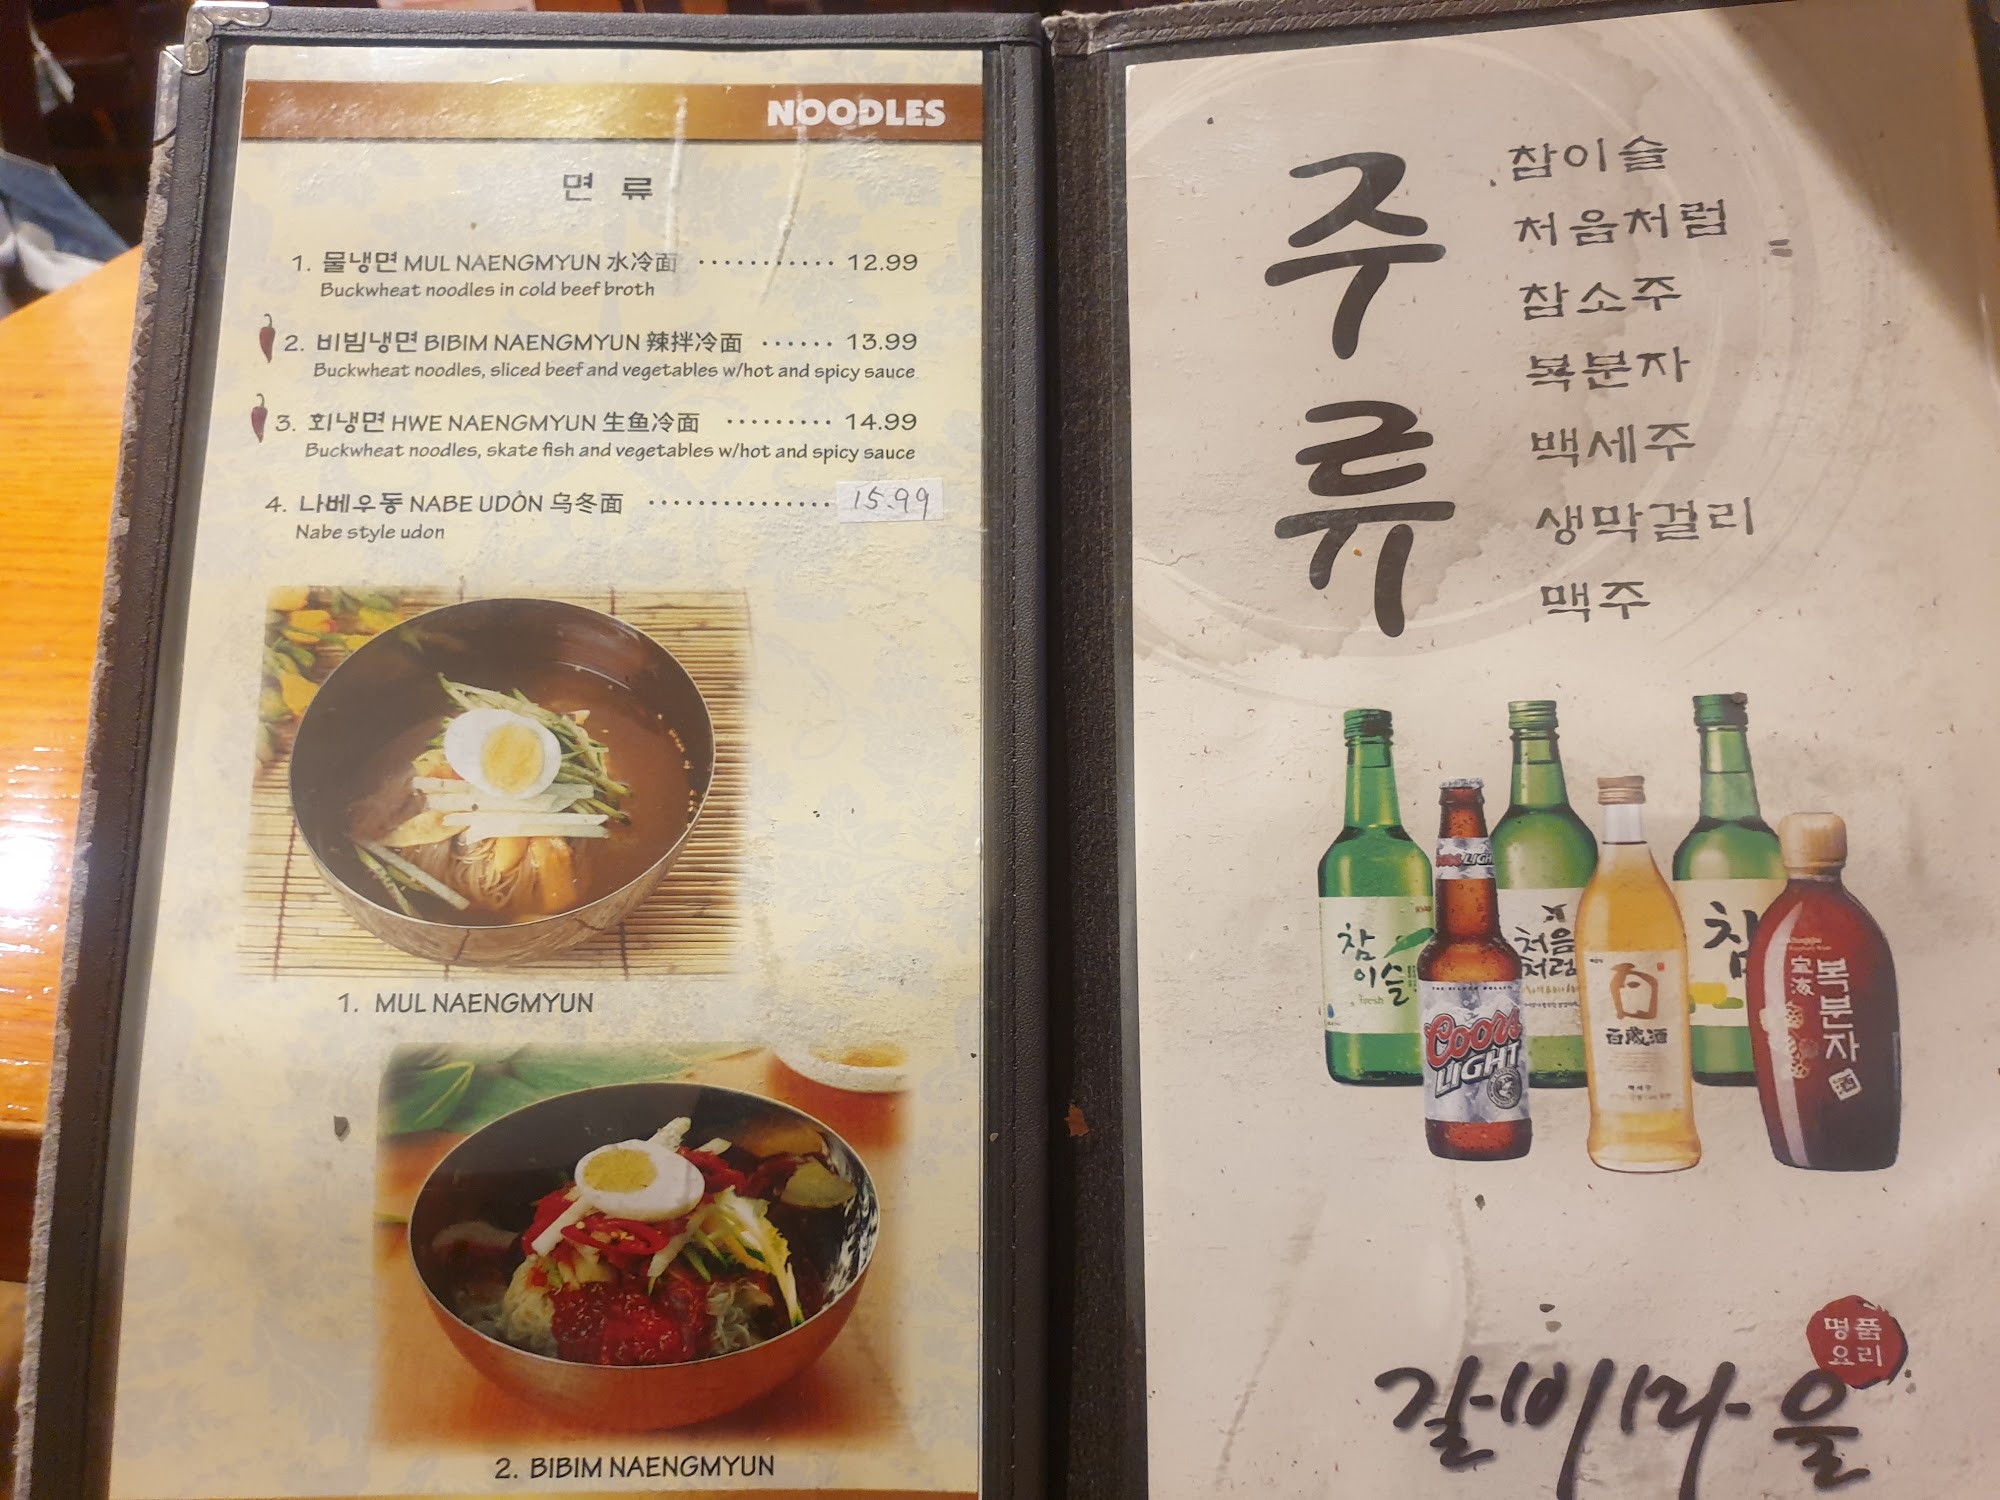 NOODLES
면 류
1. 물냉면 MUL NAENGMYUN 水冷面 ··········· 12.99
Buckwheat noodles in cold beef broth
2. 비빔냉면 BIBIM NAENGMYUN 辣拌冷面 ······ 13.99
Buckwheat noodles, sliced beef and vegetables w/hot and spicy sauce
3. 회냉면 HWE NAENGMYUN 生鱼冷面 ········· 14.99
Buckwheat noodles, skate fish and vegetables w/hot and spicy sauce
4. 나베우동 NABE UDON 乌冬面 ··············· 15.99
Nabe style udon
1. MUL NAENGMYUN
2. BIBIM NAENGMYUN
주류
참이슬
처음처럼
참소주
복분자
백세주
생막걸리
맥주
참
이슬
fresh
Coors
LIGHT
처음
처럼
百歲酒
백세주
참
복분자
명품
요리
갈비마을